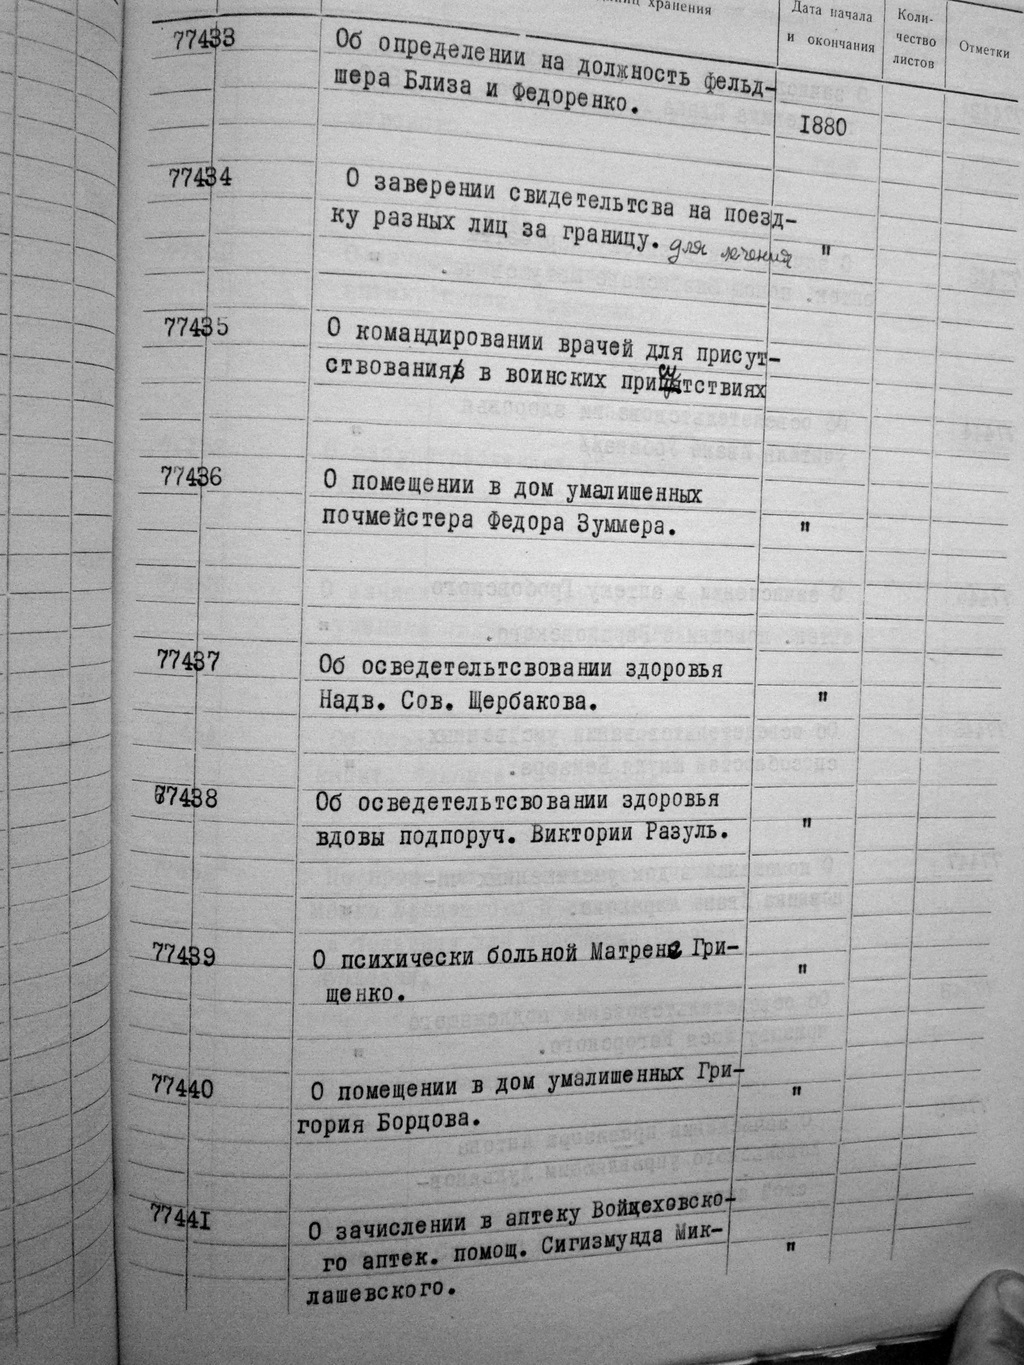 хранения
Дата начала
и окончания
Коли-
чество
листов
Отметки
77433
Об определении на должность фельд-
шера Близа и Федоренко.
1880
77434
О заверении свидетельтсва на поезд-
ку разных лиц за границу. для лечения "
77435
О командировании врачей для присут-
ствования в воинских присутствиях
77436
О помещении в дом умалишенных
почмейстера Федора Зуммера. "
77437
Об осведетельтсвовании здоровья
Надв. Сов. Щербакова. "
77438
Об осведетельтсвовании здоровья
вдовы подпоруч. Виктории Разуль. "
77439
О психически больной Матрене Гри-
щенко. "
77440
О помещении в дом умалишенных Гри-
гория Борцова. "
77441
О зачислении в аптеку Войцеховско-
го аптек. помощ. Сигизмунда Мик-
лашевского. "